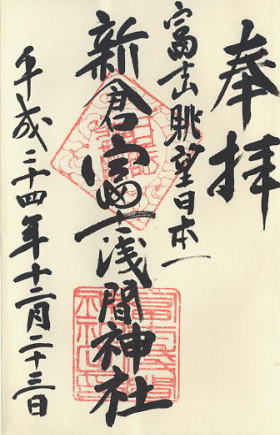 奉拝
富士眺望日本一
新倉富士浅間神社
平成二十四年十二月二十三日